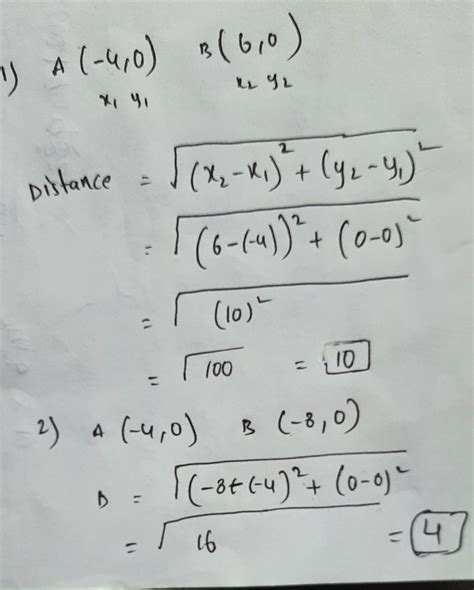 1) A (-4,0) B (6,0)
x₁ y₁ x₂ y₂
Distance = √(x₂-x₁)² + (y₂-y₁)²
= √(6-(-4))² + (0-0)²
= √(10)²
= √100 = 10
2) A (-4,0) B (-8,0)
D = √(-8-(-4)² + (0-0)²
= √16 = 4